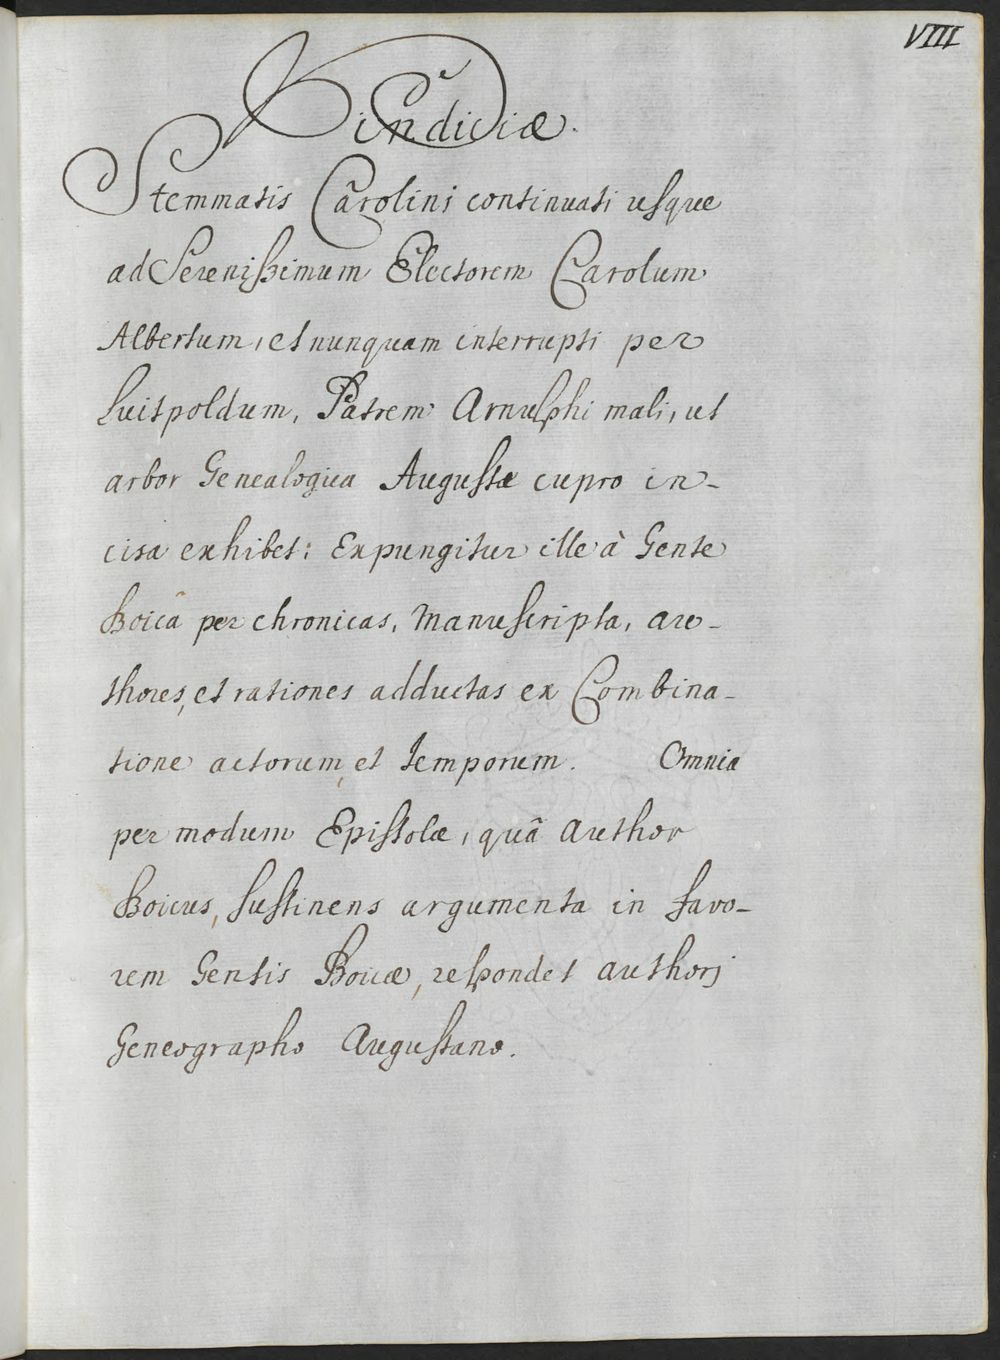 VIII
Vindiciæ.
Stemmatis Carolini continuati usque
ad Serenißimum Electorem Carolum
Albertum, et nunquam interrupti per
Luitpoldum, Patrem Arnulphi mali, ut
arbor Genealogica Augustæ cupro in-
cisa exhibet: Expungitur ille à Gente
Boicâ per chronicas, manuscripta, au-
thores, et rationes adductas ex Combina-
tione actorum, et temporum. Omnia
per modum Epistolæ, quâ author
Boicus, sustinens argumenta in favo-
rem Gentis Boicæ, respondet authorj
Geneographo Augustano.